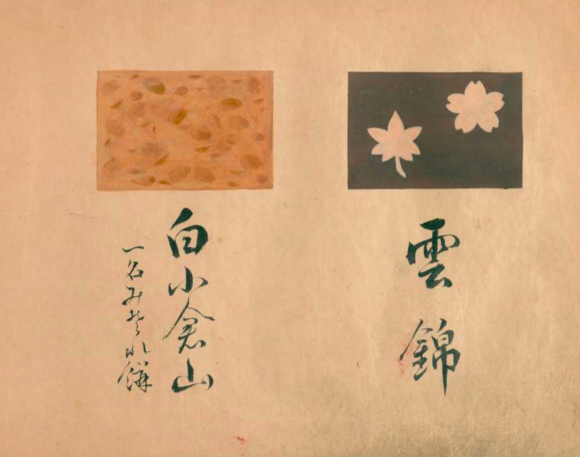 雲錦
白小倉山
一名みそれ餅